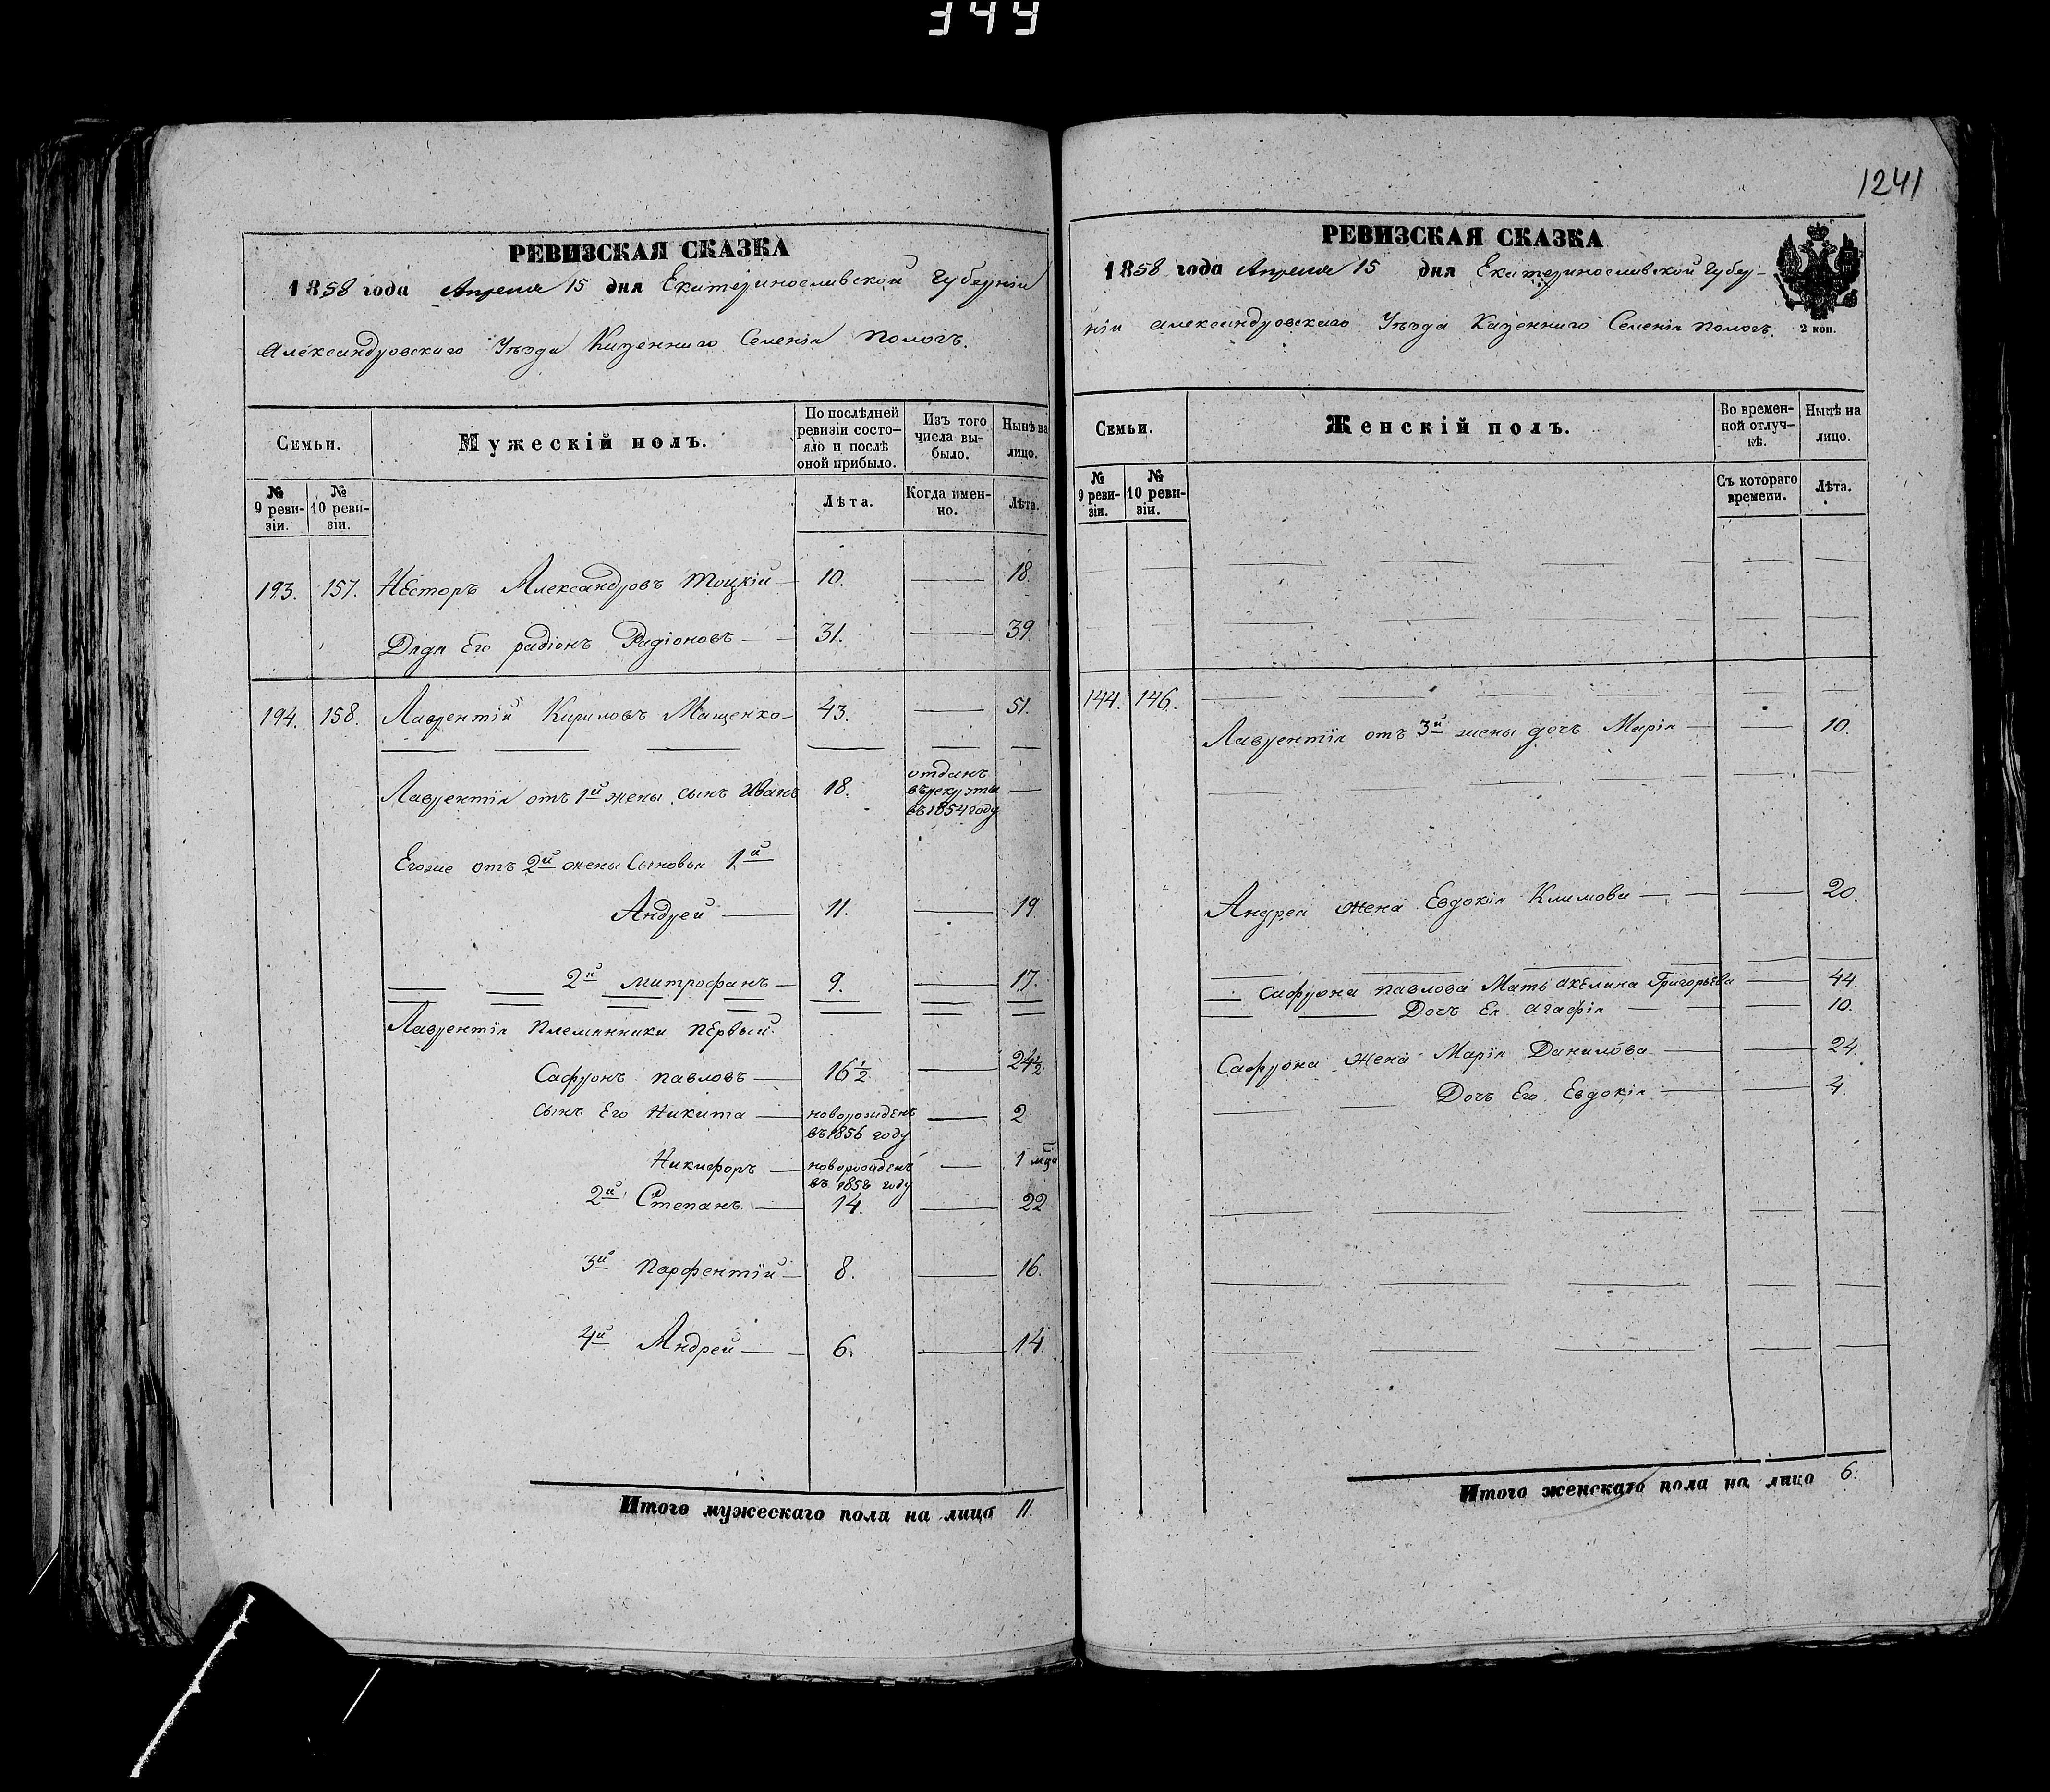 344
РЕВИЗСКАЯ СКАЗКА
1858 года Апреля 15 дня Екатеринославской Губерніи
Александровскаго Уѣзда Казеннаго Селенія Пологъ.
Семьи.
Мужескій полъ.
По послѣдней ревизіи состояло и послѣ оной прибыло.
Изъ того числа выбыло.
Нынѣ на лицо.
№ 9 ревизіи.
№ 10 ревизіи.
Лѣта.
Когда именно.
Лѣта.
193. 157. Несторъ Александровъ Тоцкій — 10. — 18.
Дядя Его радіонъ Радіоновъ — 31. — 39
194. 158. Лаврентій Кириловъ Мащенко — 43. — 51.
Лаврентія отъ 1й жены сынъ Иванъ 18. отданъ въ рекруты въ 1854 году —
Егоже отъ 2й жены Сыновья 1й
Андрей — 11. — 19
2й митрофанъ — 9. — 17.
Лаврентія Племянники Первый
Сафронъ павловъ — 16½ — 24½
сынъ Его Никита — новорожденъ въ 1856 году — 2
Никифоръ — новорожденъ въ 1858 году — 1 мца
2й Степанъ — 14. — 22
3й Парфентій — 8. — 16.
4й Андрей — 6. — 14
Итого мужескаго пола на лицо 11.
1241
РЕВИЗСКАЯ СКАЗКА
1858 года Апреля 15 дня Екатеринославской Губер-
ніи Александровскаго Уѣзда Казеннаго Селенія Пологъ.
2 коп.
Семьи.
Женскій полъ.
Во временной отлучкѣ.
Нынѣ на лицо.
№ 9 ревизіи.
№ 10 ревизіи.
Съ котораго времени.
Лѣта.
144. 146.
Лаврентія отъ 3й жены дочь Марія — 10.
Андрея жена Евдокія Климова — 20.
Сафрона павлова Мать акелина Григорьева — 44.
Дочь Ея агафія — 10.
Сафрона жена Марія Данилова — 24.
Дочь Его Евдокія — 4.
Итого женскаго пола на лицо 6.